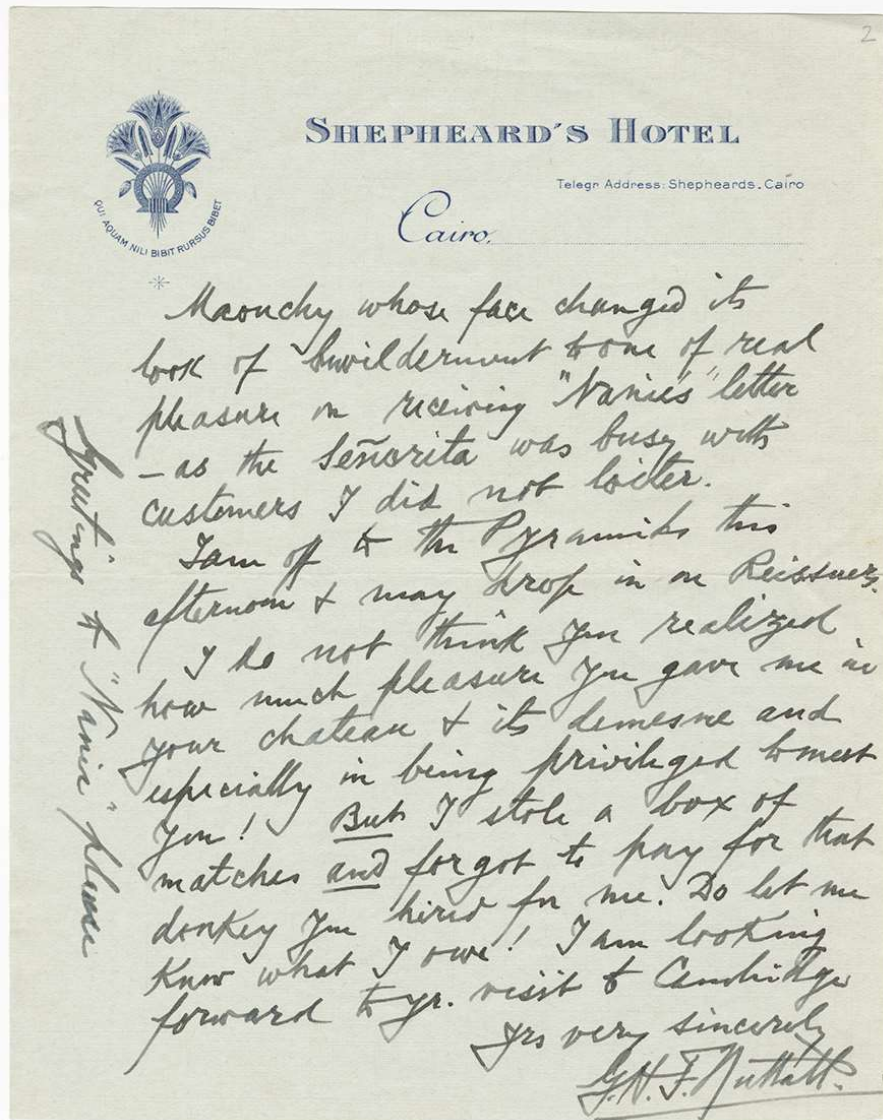 2
SHEPHEARD'S HOTEL
Telegr Address: Shepheards. Cairo
Cairo.
QUI AQUAM NILI BIBIT RURSUS BIBET
whose face changed its
look of bewilderment to one of real
pleasure on receiving "Nanie's" letter
– as the Señorita was busy with
customers I did not loiter.
I am off to the Pyramids this
afternoon & may drop in on Reissner.
I do not think you realized
how much pleasure you gave me in
your chateau & its demesne and
especially in being privileged to meet
you! But I stole a box of
matches and forgot to pay for that
donkey you hired for me. Do let me
know what I owe! I am looking
forward to yr. visit to Cambridge
Yrs very sincerely
G.H.F. Nuttall.
Greetings to "Nanie" please